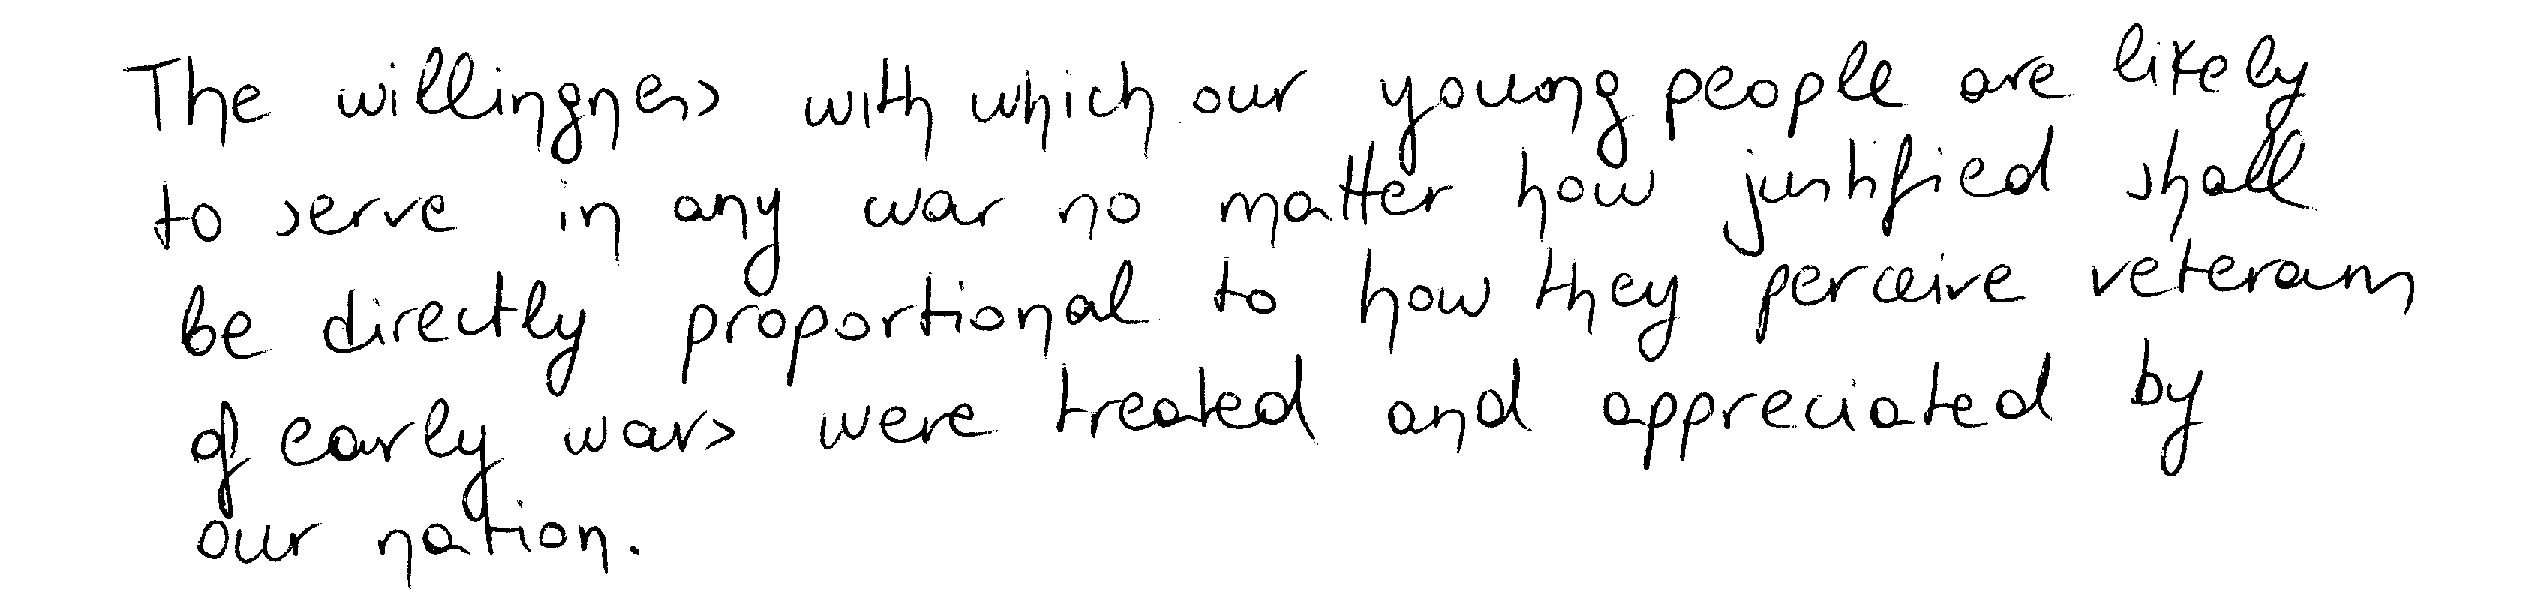 The willingness with which our young people are likely
to serve in any war no matter how justified shall
be directly proportional to how they perceive veterans
of early wars were treated and appreciated by
our nation.